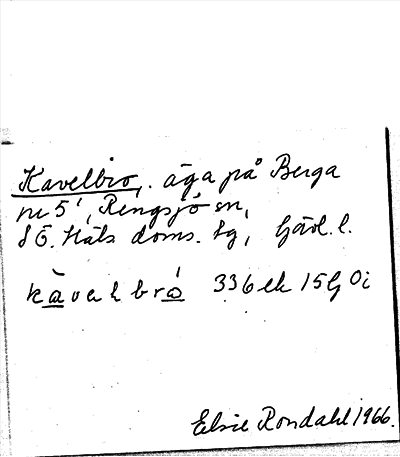 Kavelbro, äga på Berga
nr 5', Rengsjö sn,
SÖ. Häls doms. lg, Gävl. l.
kàvelbrá 336 ek 15 G 0 i
Elsie Rondahl 1966.